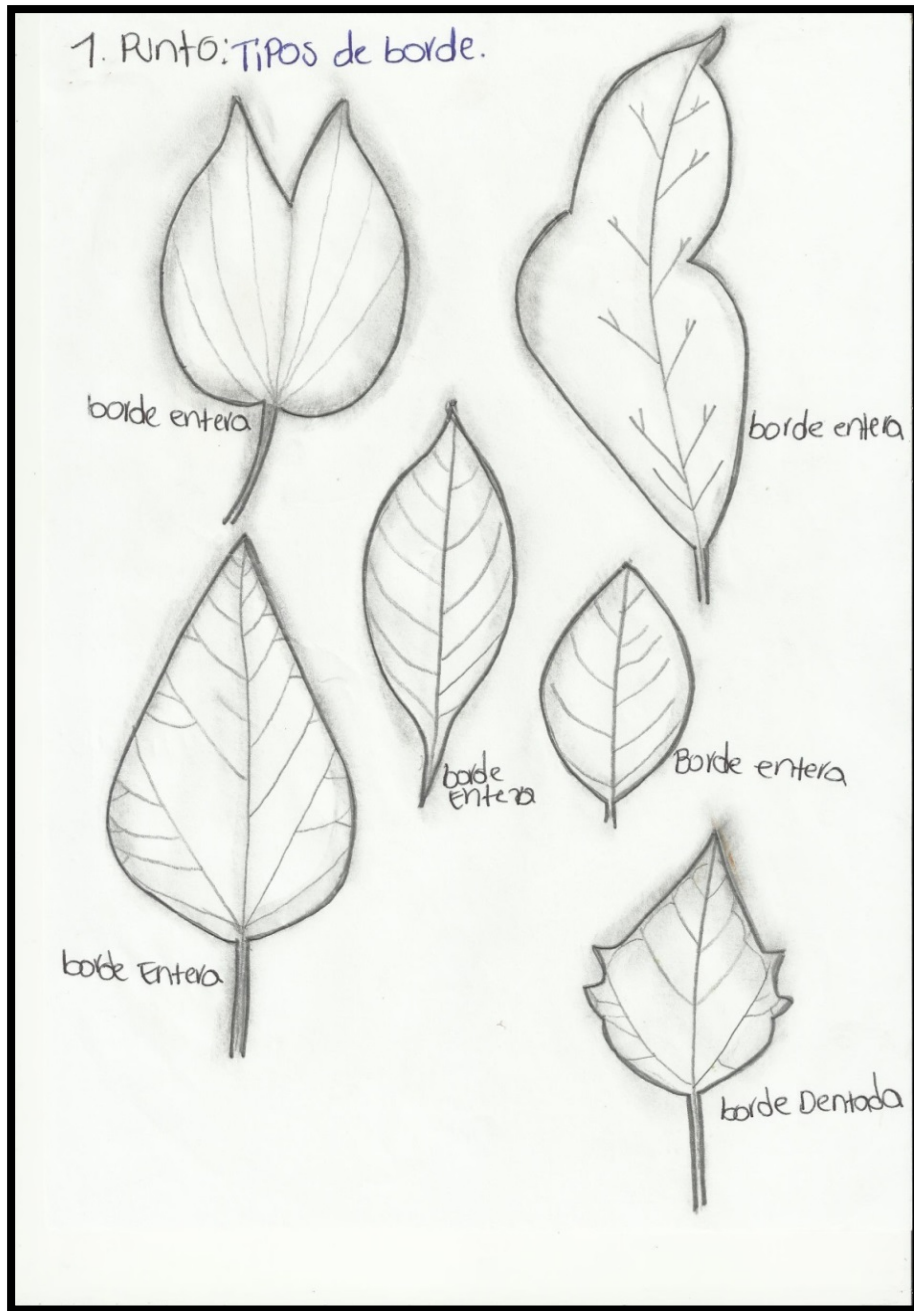 1. Punto: Tipos de borde.
borde entera
borde entera
borde
Entera
Borde entera
borde Entera
borde Dentada